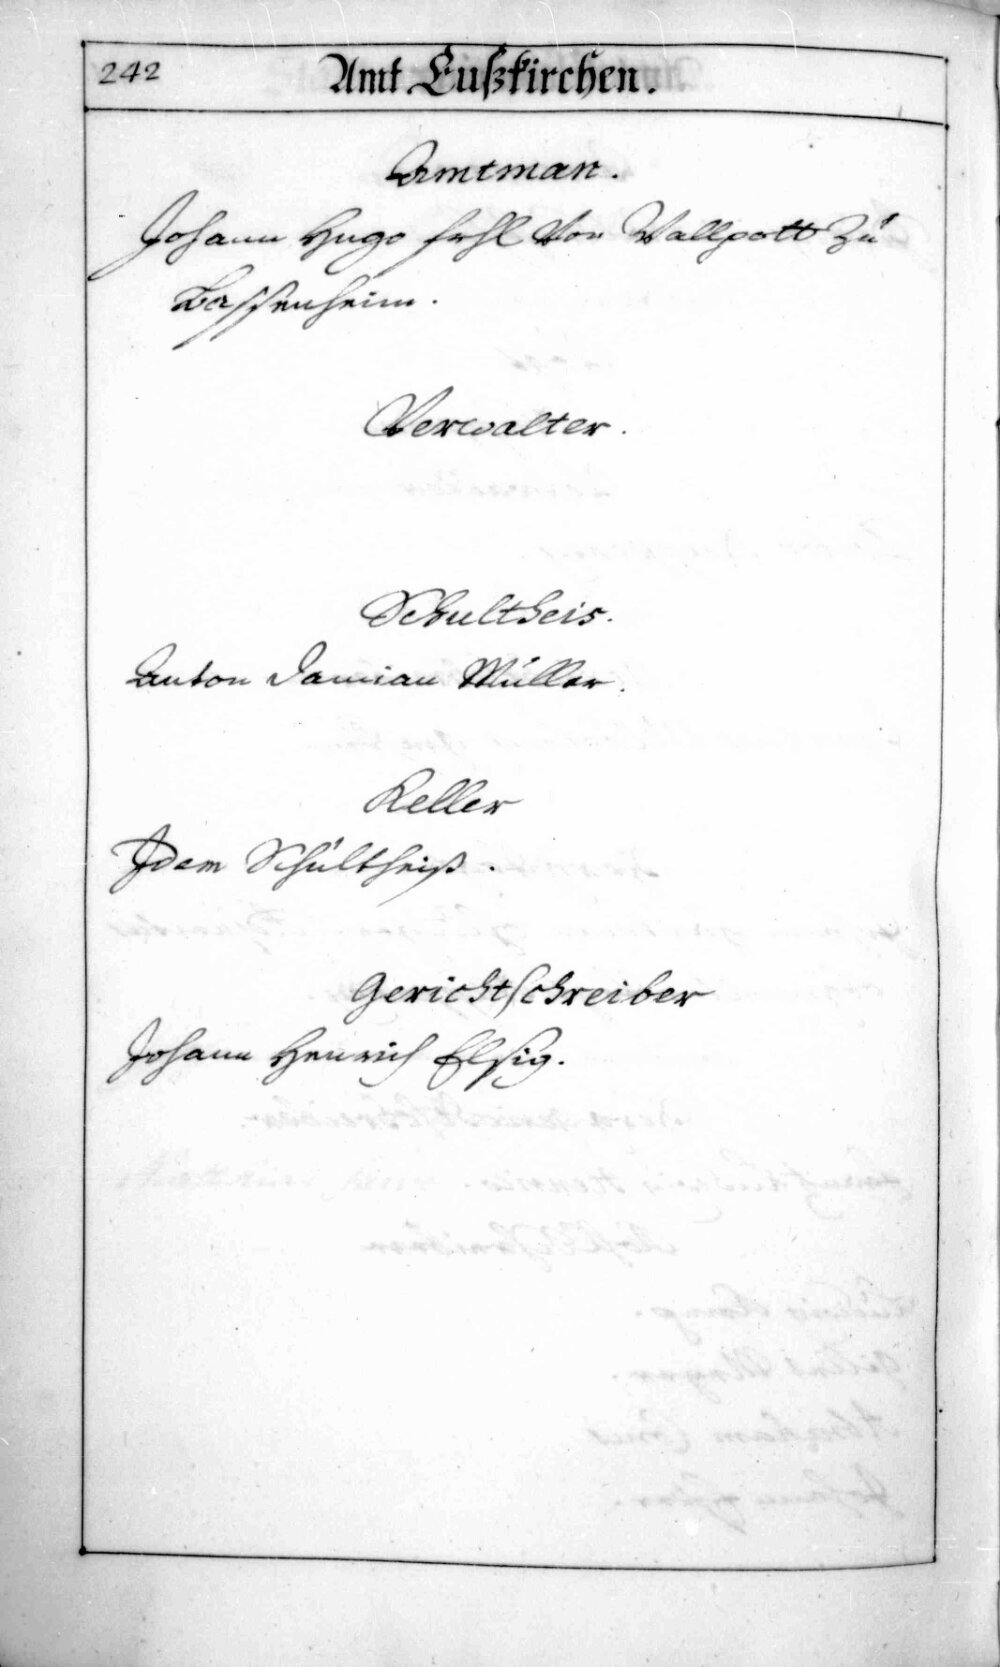 242
Amt Eußkirchen.
Amtman.
Johann Hugo frhl Von Wallpott Zu
Bassenheim.
Verwalter.
Schultheis.
Anton Damian Müller.
Keller
Idem Schultheiß.
Gerichtschreiber
Johann Henrich Elsig.